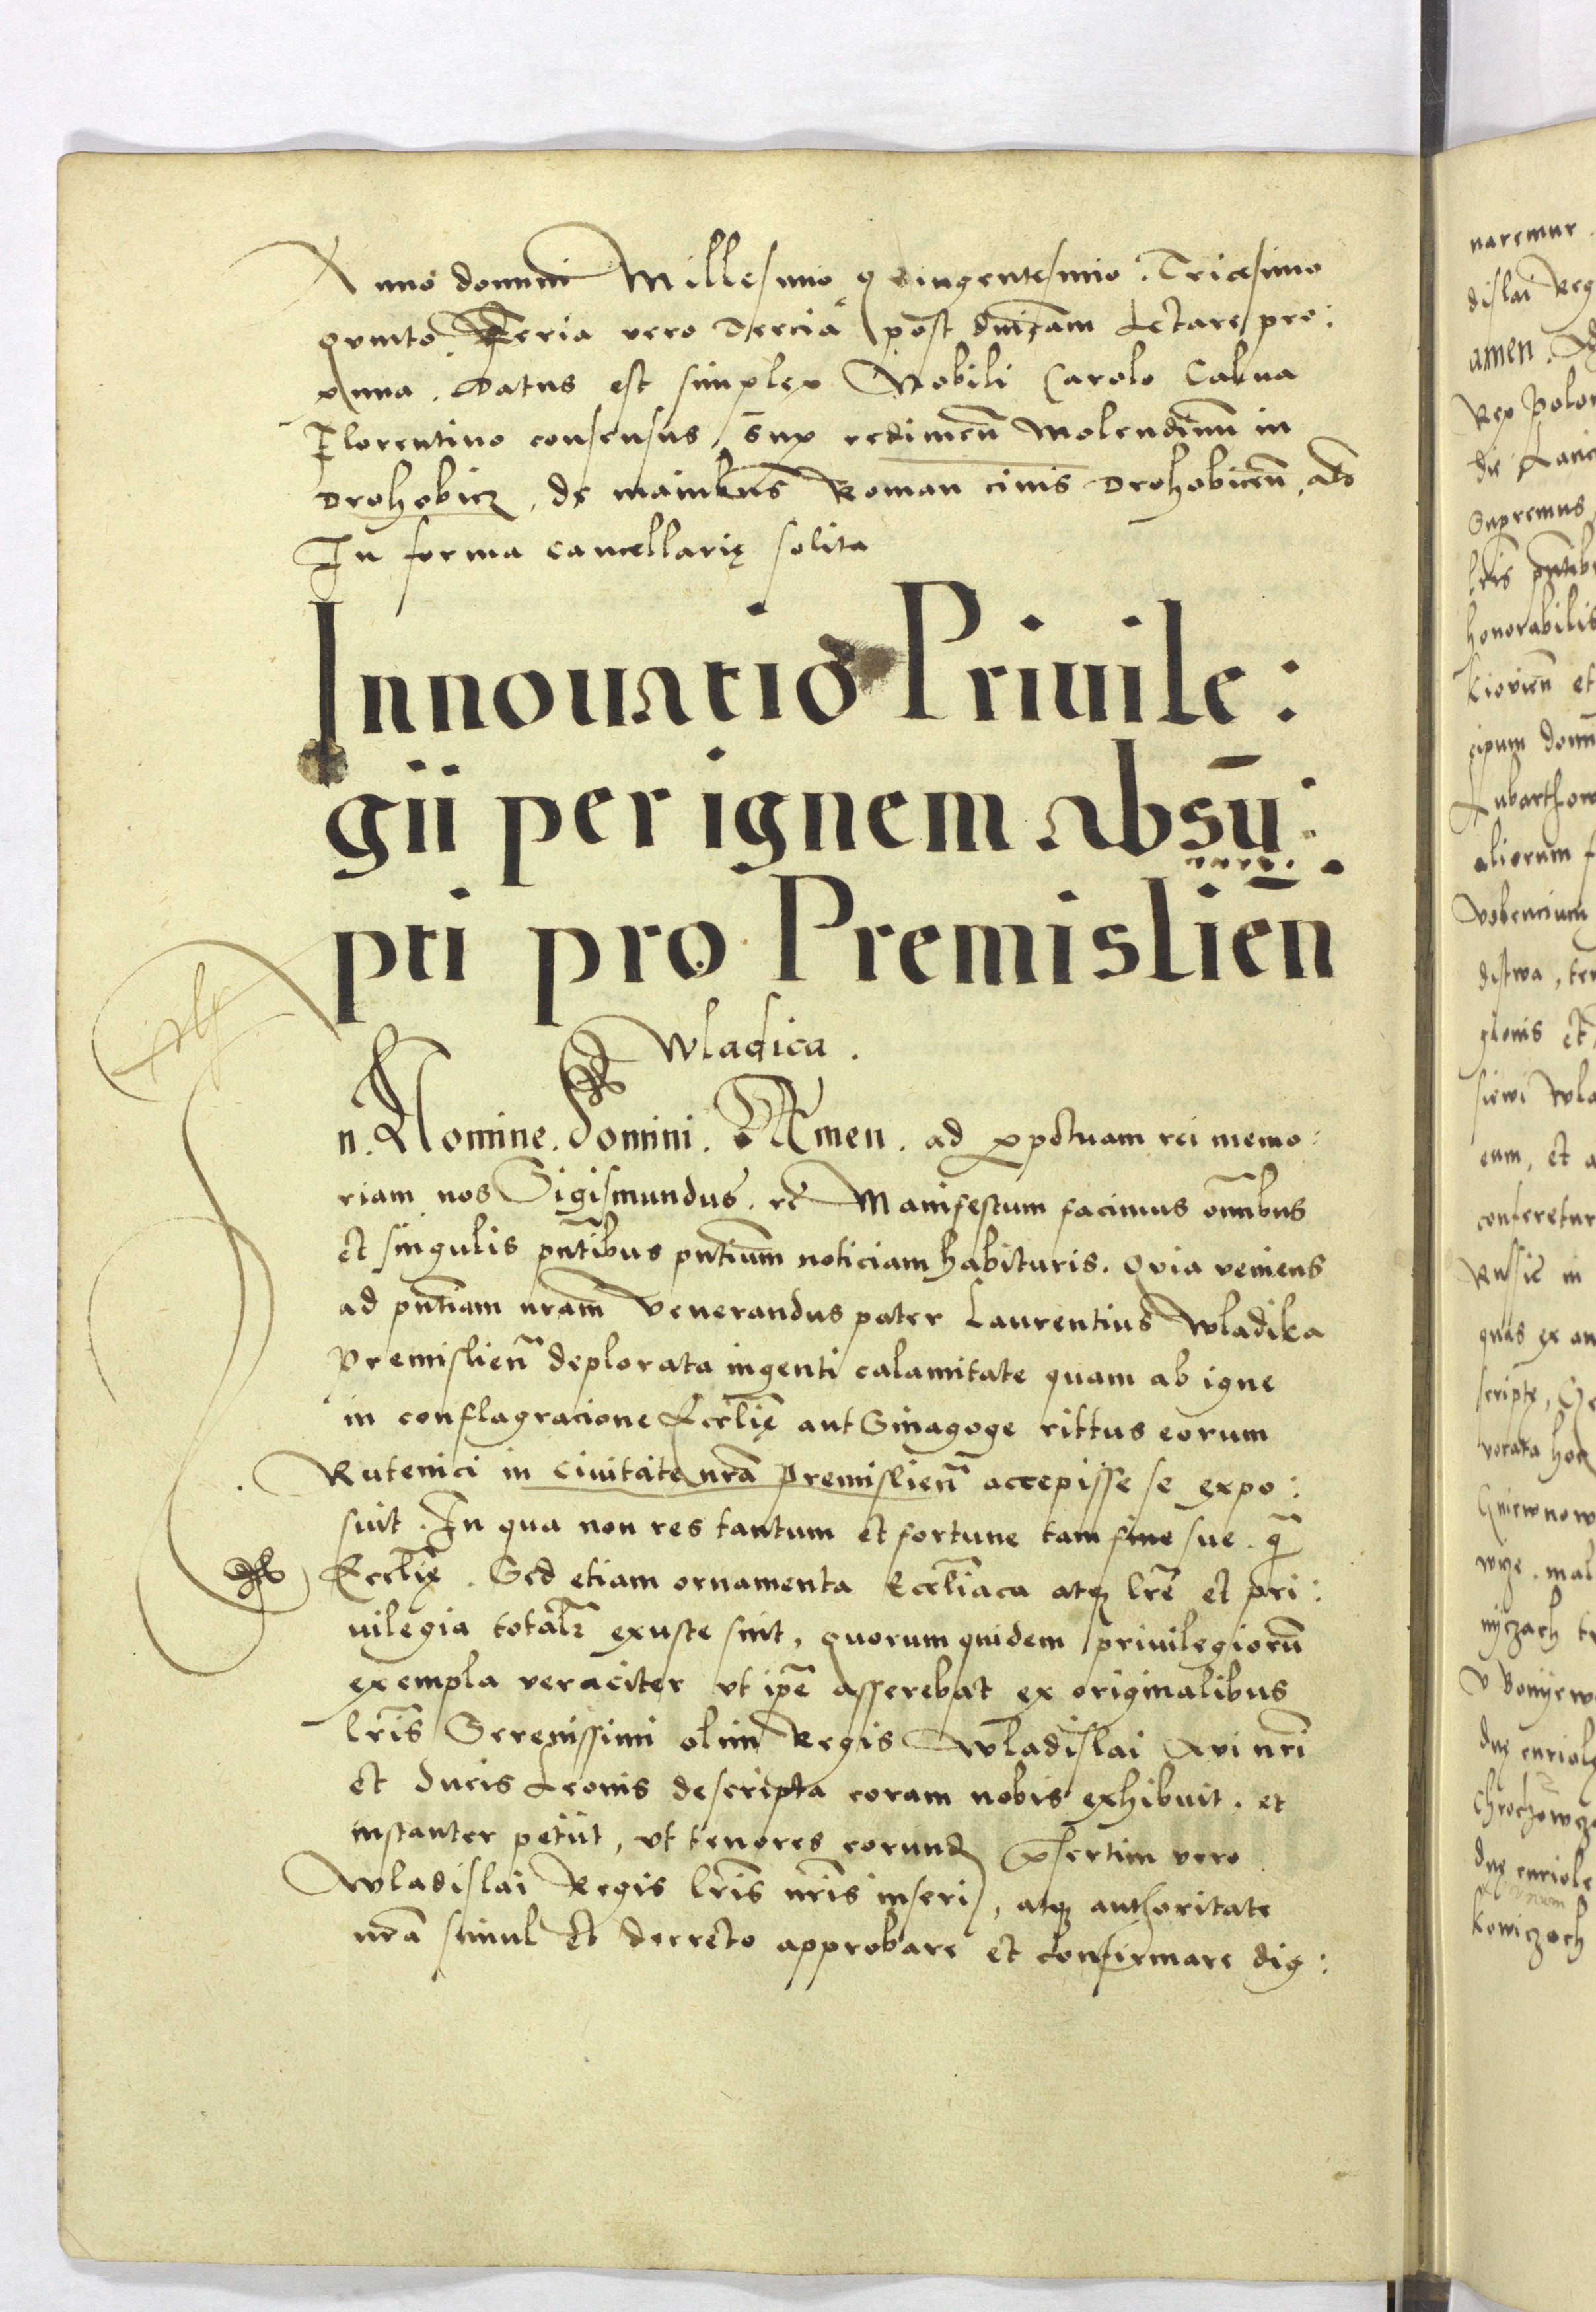 Anno domini Millesimo quingentesimo. Tricesimo
quinto. Feria vero Tercia post dnicam Letare pro:
xima. Datus est simplex Nobili Carolo Calvua
Florentino consensus, sup redimen̄ Molendinū in
Drohobicz, de manibus Roman civis Drohobicen̄,
In forma cancellarię solita
Innouatio Priuile:
gii per ignem absū:
pti pro Premislien̄
Wladica.
n. Nomine. Domini. Amen. ad ꝑpetuam rei memo:
riam nos Sigismundus. rc̄ Manifestum facimus om̄ibus
et singulis pn̄tibus pn̄tium noticiam habituris. Quia veniens
ad pn̄tiam nr̄am Venerandus pater Laurentius Wladika
Premislien̄ deplorata ingenti calamitate quam ab igne
in conflagracione Eccl̄ię aut Sinagoge rittus eorum
Rutenici in Ciuitate nr̄a Premislien̄ accepisse se expo:
suit. In qua non res tantum et fortune tam sine sue. q̄
Eccl̄ię. Sed etiam ornamenta Eccl̄iaca atqꝫ lr̄e et pri:
uilegia totalr̄ exuste sint, quorum quidem priuilegiorū
exempla veraciter vt ip̄e asserebat ex originalibus
lr̄is Serenissimi olim Regis Wladislai Aui nr̄i
et Ducis Leonis descripta coram nobis exhibuit. et
instanter petiit, vt tenores eorund p̄sertim vero
Wladislai Regis lr̄is nr̄is inseri, atqꝫ authoritate
nr̄a simul et decreto approbare et confirmare dig:
naremur.
dislai Reg
amen.
Rex Polon
die
Supremus
lr̄is pn̄tib
honorabilis
Kiovien̄ et
cipum domi
Lubarthow
aliorum f
distwa, ter
siewi Wla
eum, et a
conferetur
Russie in
quas ex an
scripte,
vorata hoc
Gniewnow
mal
kowiczoch